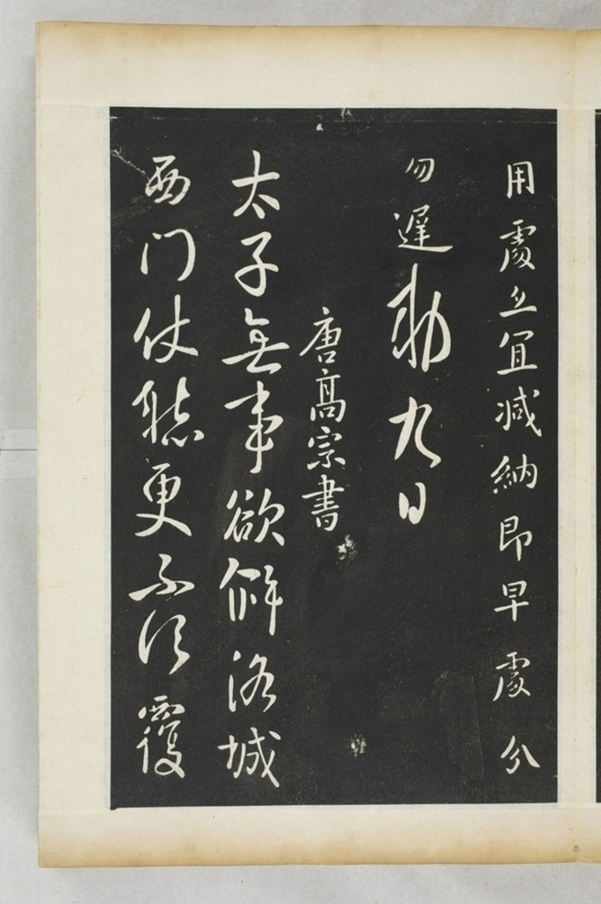 用處亦宜减納即早處分
勿遲勅九日
唐高宗書
太子無事欲解洛城
西门仗聴更不須覆